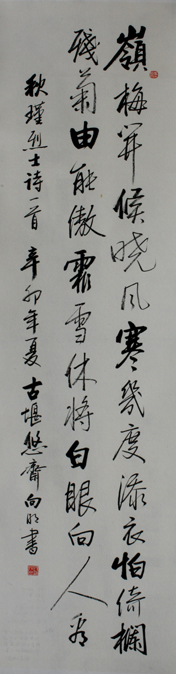 嶺梅開候晓风寒幾度添衣怕倚欄
残菊由能傲霜雪休将白眼向人看
秋瑾烈士诗一首 辛卯年夏 古堰悠齋向明書